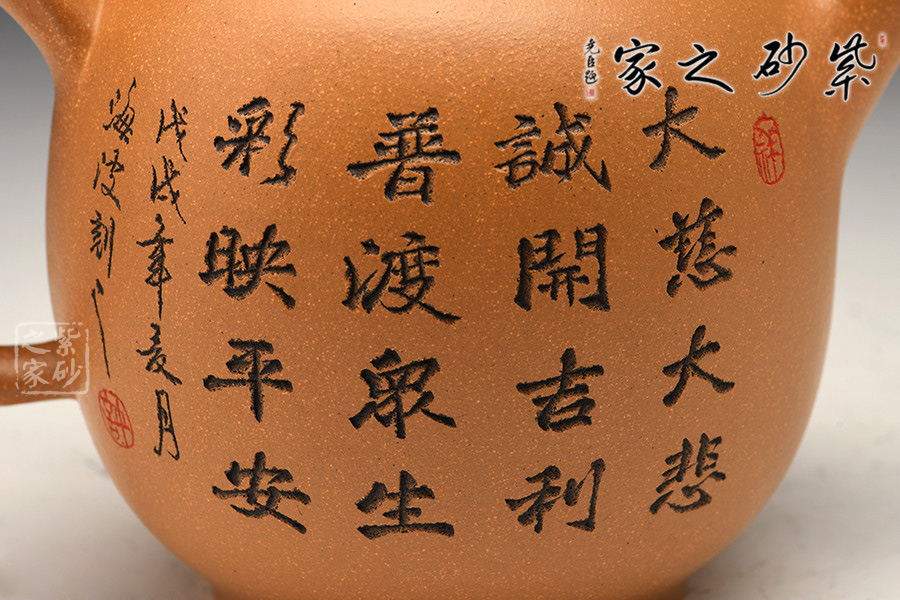 紫砂之家
大慈大悲
誠開吉利
普渡眾生
彩映平安
戊戌年夏月
紫砂之家